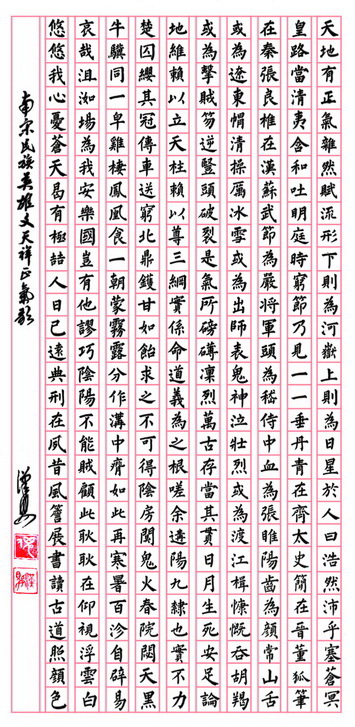 天地有正氣雜然賦流形下則為河嶽上則為日星於人曰浩然沛乎塞蒼冥
皇路當清夷含和吐明庭時窮節乃見一一垂丹青在齊太史簡在晉董狐筆
在秦張良椎在漢蘇武節為嚴將軍頭為嵇侍中血為張睢陽齒為顏常山舌
或為遼東帽清操厲冰雪或為出師表鬼神泣壯烈或為渡江楫慷慨吞胡羯
或為擊賊笏逆豎頭破裂是氣所磅礴凜烈萬古存當其貫日月生死安足論
地維賴以立天柱賴以尊三綱實係命道義為之根嗟余遘陽九隸也實不力
楚囚纓其冠傳車送窮北鼎鑊甘如飴求之不可得陰房闃鬼火春院閟天黑
牛驥同一皁雞棲鳳凰食一朝蒙霧露分作溝中瘠如此再寒暑百沴自辟易
哀哉沮洳場為我安樂國豈有他謬巧陰陽不能賊顧此耿耿在仰視浮雲白
悠悠我心憂蒼天曷有極詰人日已遠典刑在夙昔風簷展書讀古道照顏色
南宋民族英雄文天祥正氣歌